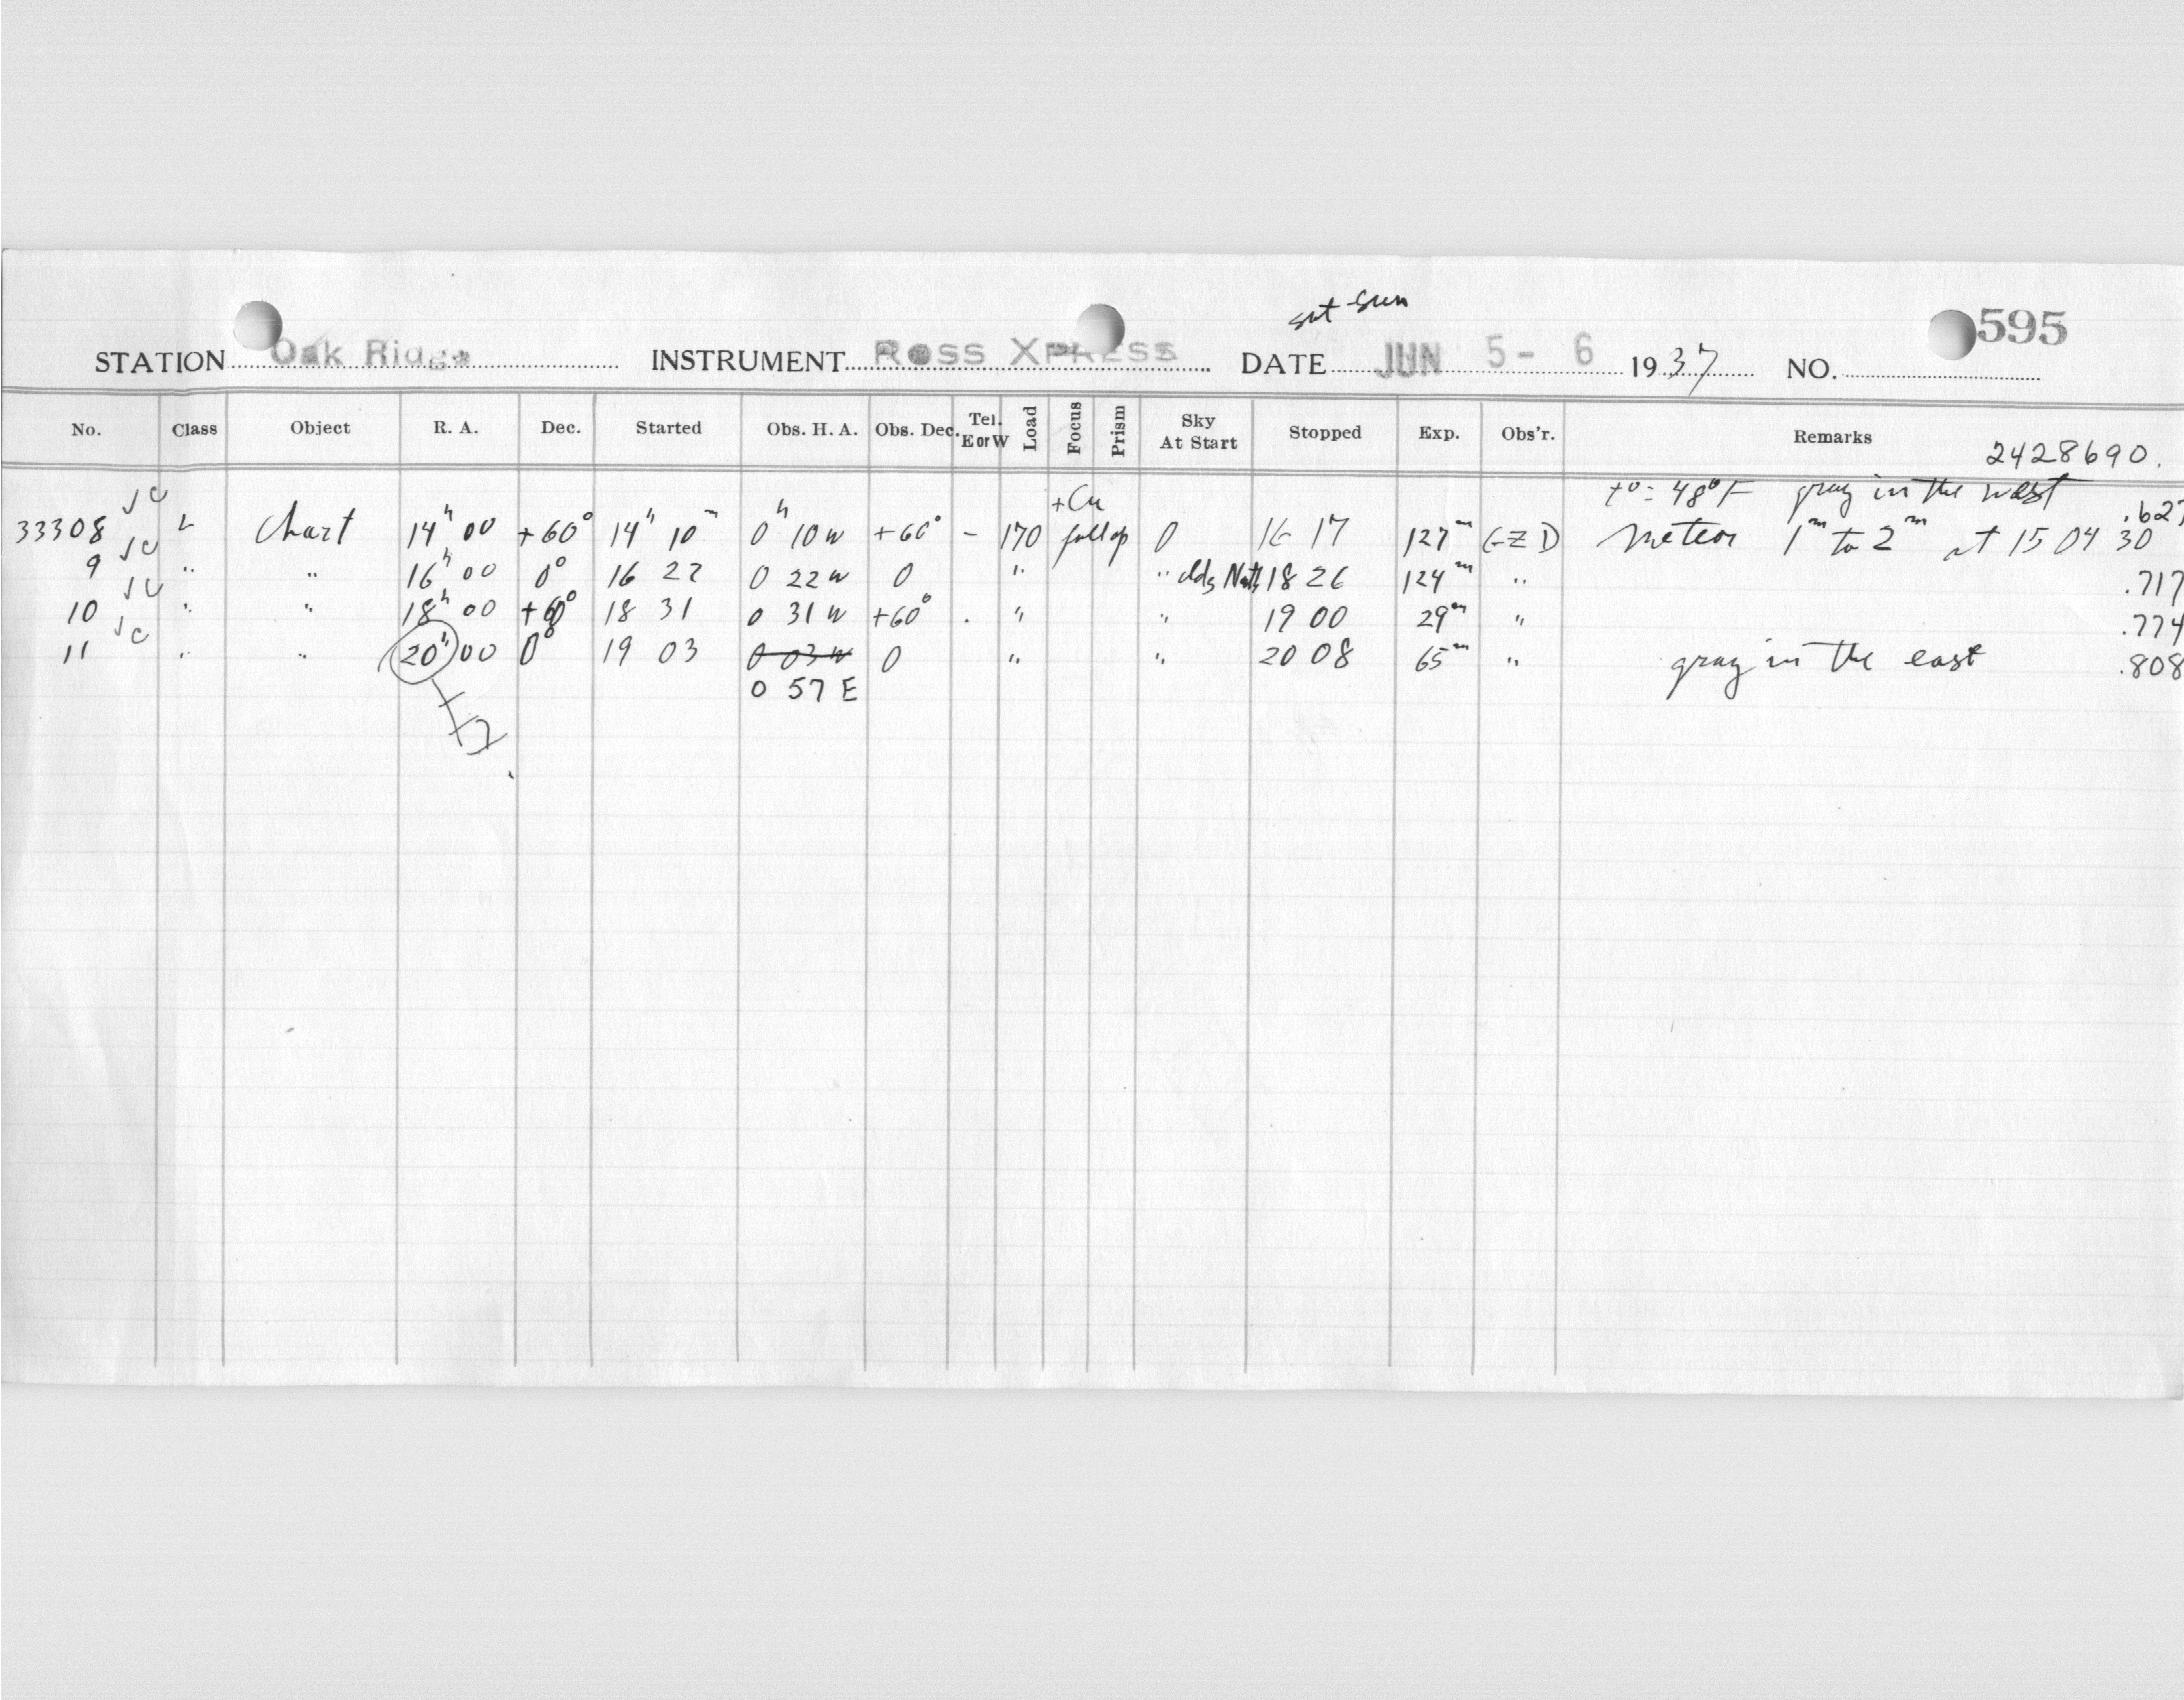 sat-sun
595
STATION Oak Ridge INSTRUMENT Ross XPRESS DATE JUN 5-6 1937 NO.
No. Class Object R. A. Dec. Started Obs. H. A. Obs. Dec. Tel. E or W Load Focus Prism Sky At Start Stopped Exp. Obs'r. Remarks
2428690.
√C +Cu t° = 48°F gray in the west
33308 L Chart 14h 00 +60° 14h 10m 0h 10 W +60° - 170 full op 0 16 17 127m GZD Meteor 1m to 2m at 15 04 30 .627
√C
9 " " 16h 00 0° 16 22 0 22 W 0 " " clds North 18 26 124m " .717
√C
10 " " 18h 00 +60° 18 31 0 31 W +60° . " " 19 00 29m " .774
√C
11 " " 20h 00 0° 19 03 0 03 W 0 " " 20 08 65m " gray in the east .808
0 57 E